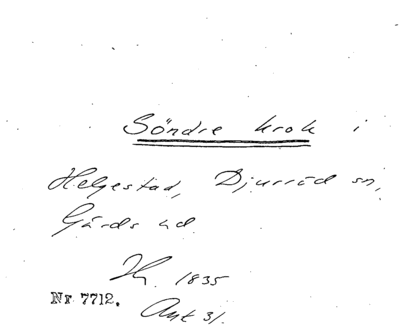 Söndre krok i
Helgestad, Djurröd sn,
Gärds hd.
H. 1835
Nr 7712.
Akt 31.